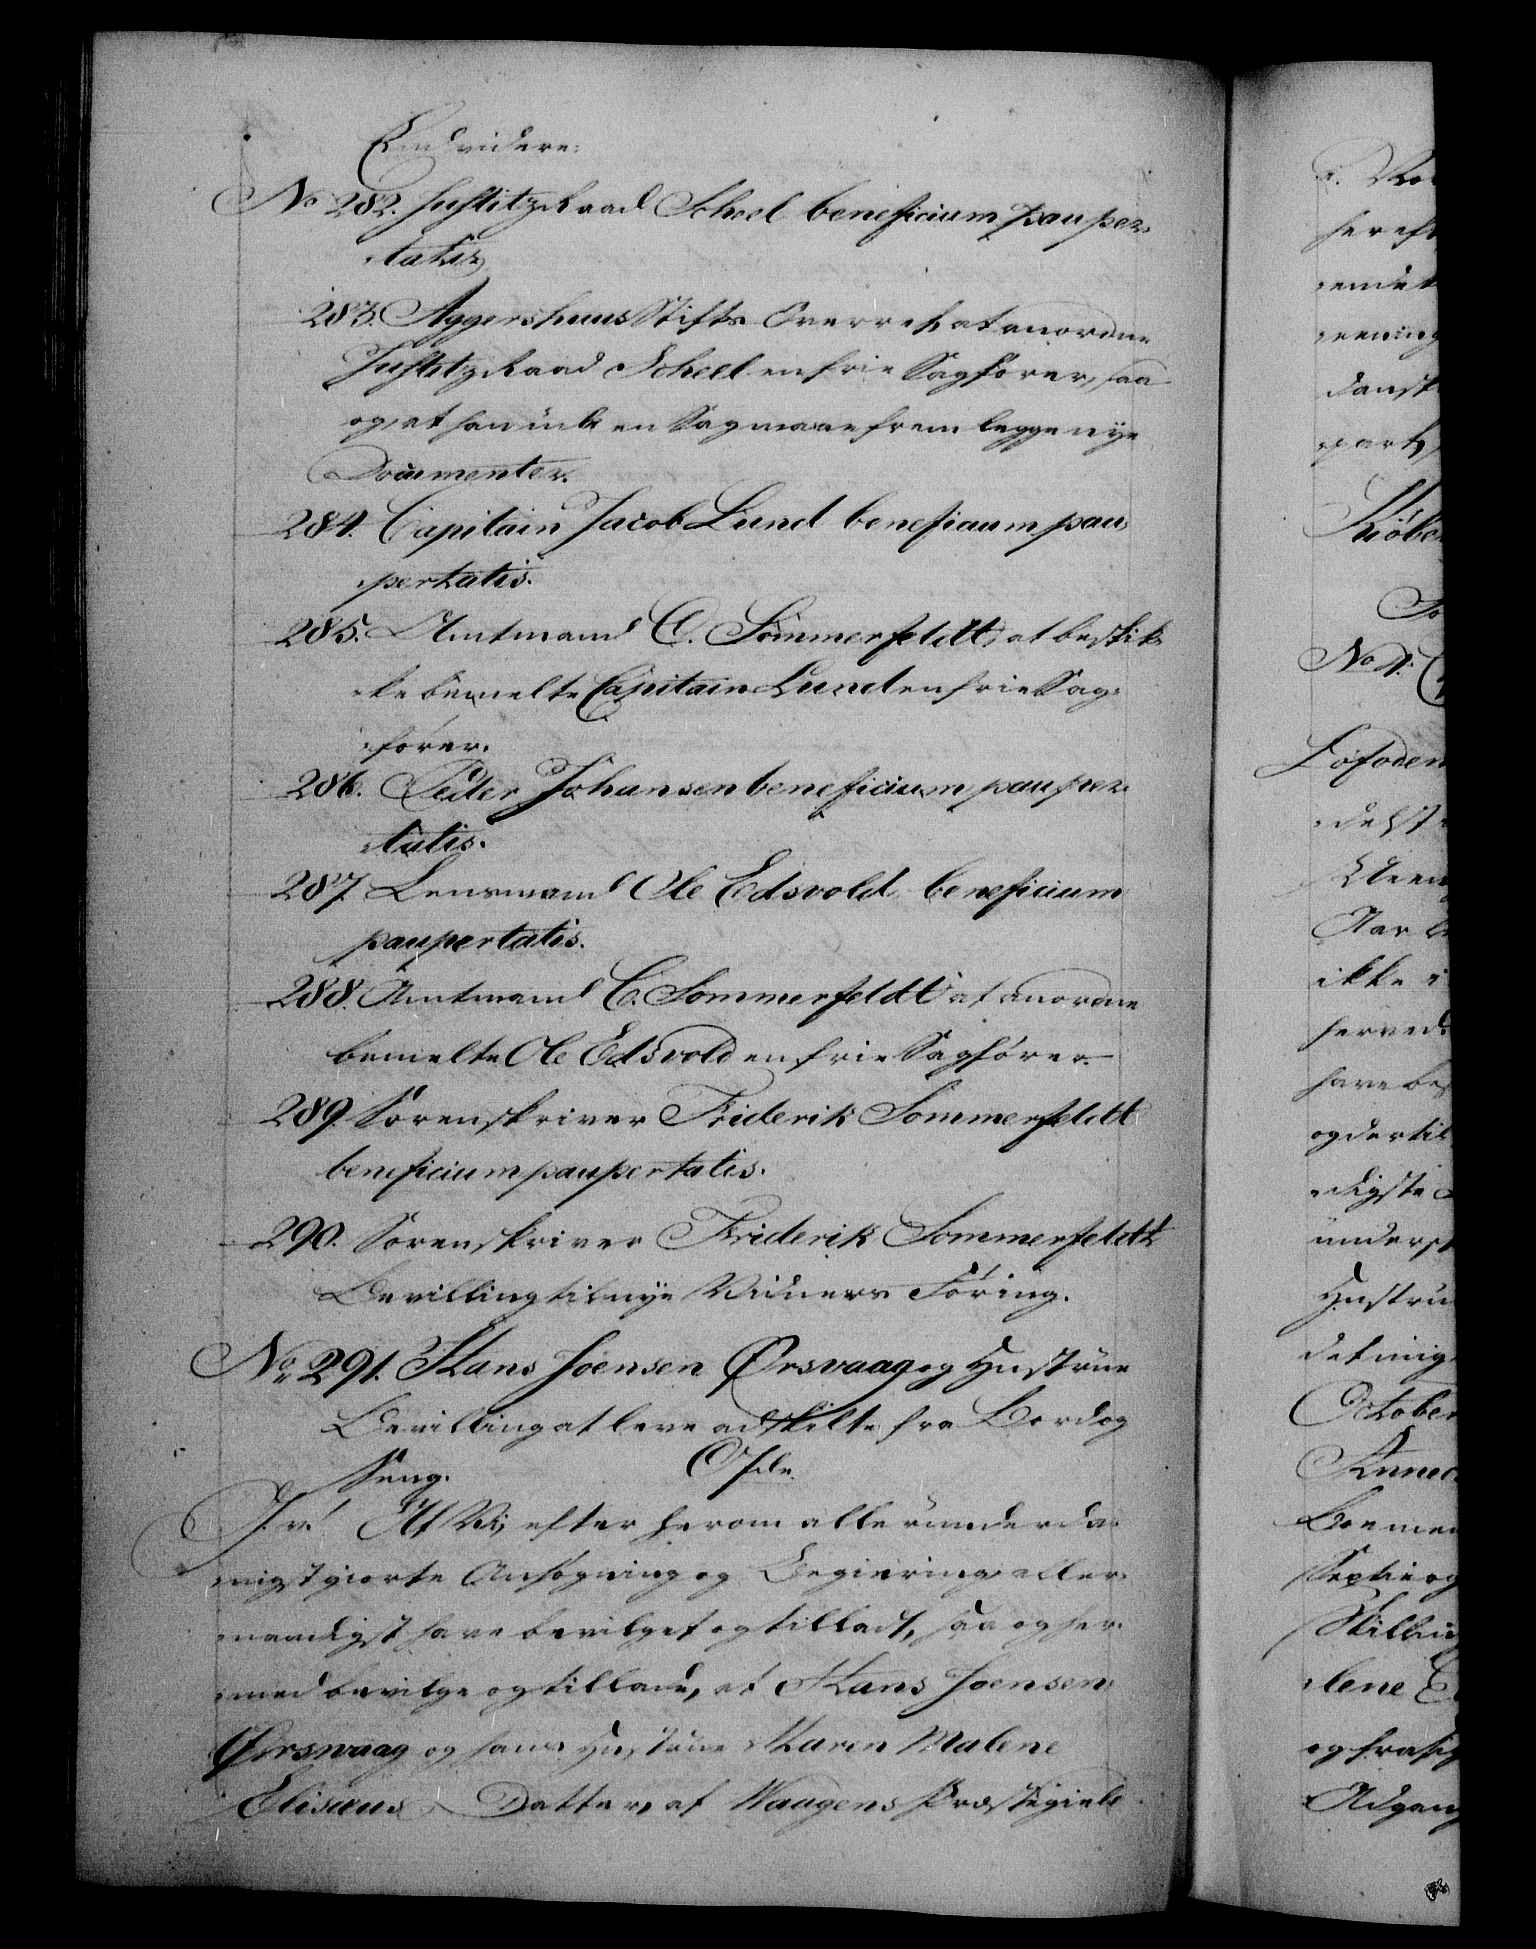 Endvidere:
No 282. Justitzraad Scheel beneficium pauper-
tatis
283. Aggershuus Stifts Overret at anordne
Justitzraad Scheel en frie Sagfører, saa
og at han i en Sag maae fremlegge nye
Documenter.
284. Capitain Jacob Lund beneficium pau-
pertatis.
285. Amtmand C. Sommerfeldt, at beskik-
ke bemelte Capitain Lund en frie Sag-
fører.
286. Peder Johansen beneficium pauper-
tatis.
287. Lensmand Ole Edsvold beneficium
paupertatis.
288. Amtmand C. Sommerfeldt at anordne
bemelte Ole Edsvold en frie Sagfører.
289. Sorenskriver Friderik Sommerfeldt
beneficium paupertatis.
290. Sorenskriver Friderik Sommerfeldt
Bevilling til nye Vidners Føring.
No 291. Hans Joensen Ørsvaag og Hustrue
Bevilling at leve adskilte fra Bord og
Seng.
G. v! At Vi, efter herom allerunderda-
nigst giorte Ansøgning og Begiering, aller-
naadigst have bevilget og tilladt, saa og her-
med bevilge og tillade, at Hans Joensen
Ørsvaag og hans Hustrue Karen Malene
Elisæus Datter, af Waagens Præstegield
No 1.
Lofoden
Aar
ikke i
herved
have be
og dertil
digste
underst
Hustru
det mig
October
og fra
Adgang